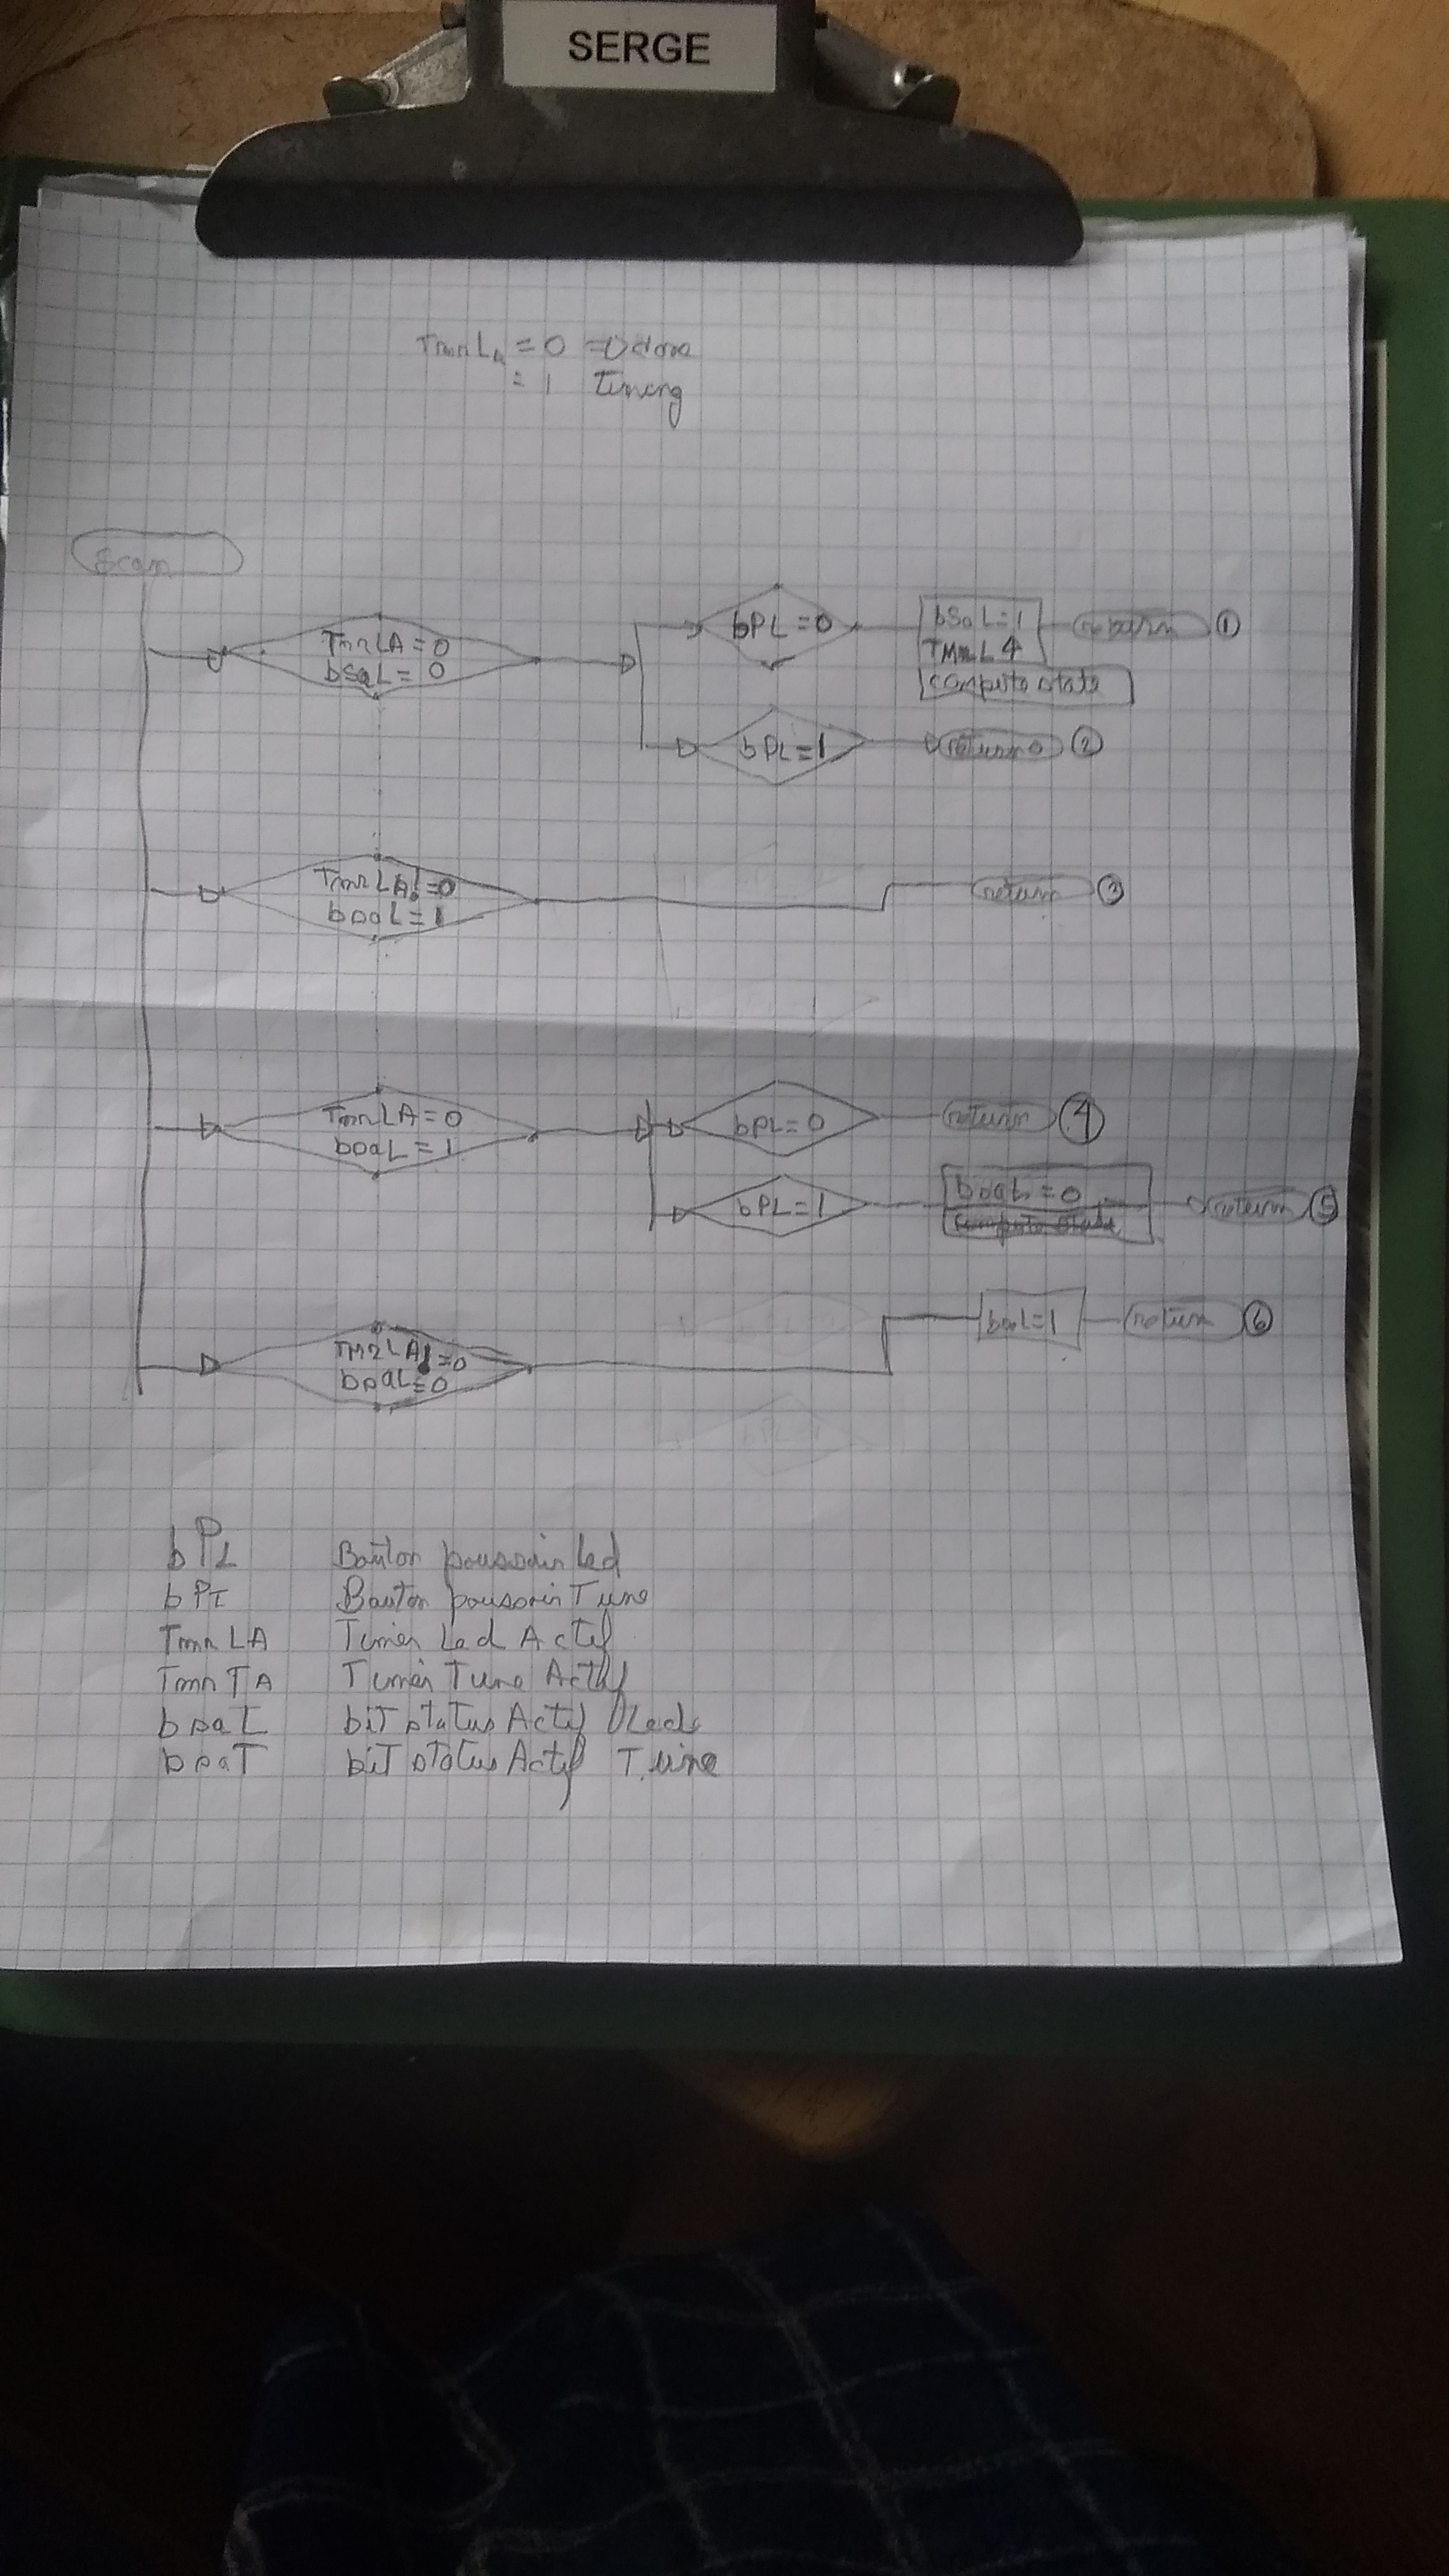 SERGE
TmrLA = 0 => done
= 1 Timing
Scan
TmrLA = 0
bsaL = 0
bPL = 0
bSaL = 1
TMRL 4
compute state
return ①
bPL = 1
return ②
TmrLA != 0
bsaL = 1
return ③
TmrLA = 0
bsaL = 1
bPL = 0
return ④
bPL = 1
bsaL = 0
return ⑤
TmrLA != 0
bsaL = 0
bsaL = 1
return ⑥
bPL Bouton poussoir Led
bPT Bouton poussoir Tune
TmrLA Timer Led Actif
TmrTA Timer Tune Actif
bsaL bit status Actif Leds
bsaT bit status Actif Tune